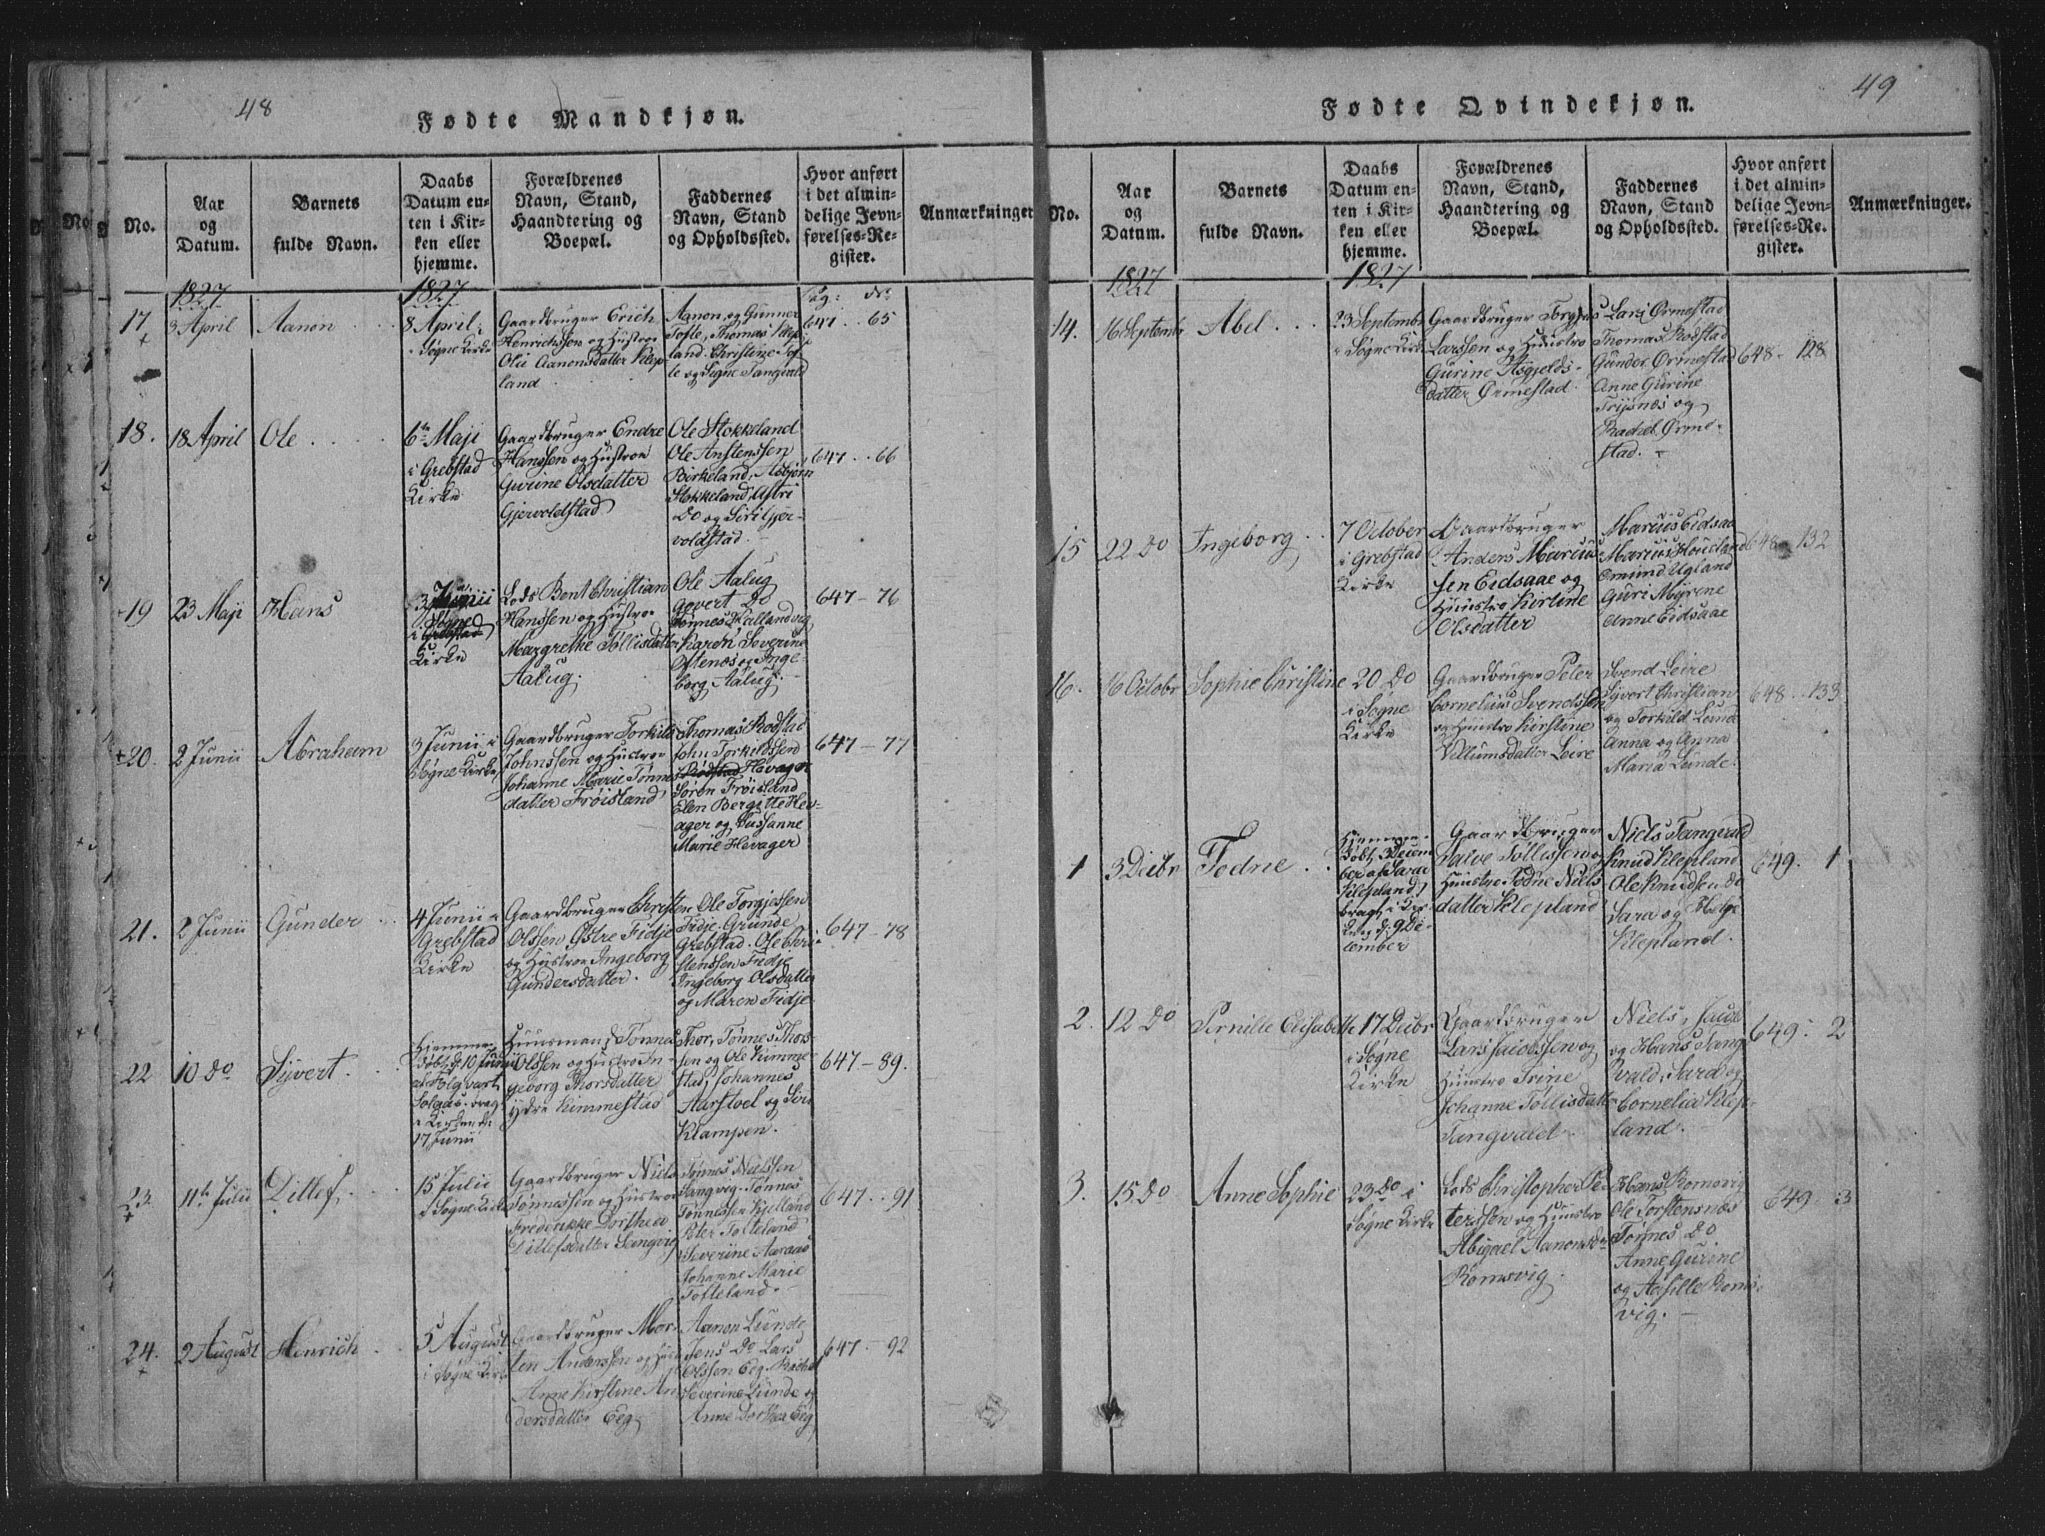 48
Fødte Mandkjøn.
No.
Aar
og
Datum.
Barnets
fulde Navn.
Daabs
Datum en-
ten i Kir-
ken eller
hjemme.
Forældrenes
Navn, Stand,
Haandtering og
Boepæl.
Faddernes
Navn, Stand
og Opholdssted.
Hvor anført
i det almin-
delige Jevn-
førelses-Re-
gister.
Anmærkninger
1827
1827
17
3 April
Aanon
8 April
i Søgne Kirke
Gaardbruger Erich
Henrichssen og Hustroe
Olie Aanonsdatter Klep
land
Aanon og Gunner
Tofte, Thomas Klep
land. Christine Tof
te og Signe Tangvald
647 .. 65
18.
18 April
Ole
6te Maji
i Grebstad
Kirke
Gaardbruger Endre
Hanssen og Hustroe
Gurine Olsdatter
Gjervoldstad
Ole Stokkeland
Ole Anstenssen
Birkeland, Asbjørn
Stokkeland, Astri
do og Siri Gjer-
voldstad.
647 .. 66
19
23 Maji
Hans
3 Junii
Søgne
i Grebstad
Kirke
Lods Bent Christian
Hanssen og Hustroe
Margrethe Tøllisdatter
Aalug.
Ole Aalug
Gevert do
Tønnes Hallandvig
Karen Severine
Østenæs og Inge-
borg Aalug.
647 - 76
20.
2 Junii
Abraham
3 Junii i
Søgne Kirke
Gaardbruger Torkild
Johnssen og Hustroe
Johanne Marie Tønnes
datter Frøisland
Thomas Rodstad
John Torkildsen
Rodstad Hevager
Søren Frøisland
Elen Bergitte Hev-
ager og Sussanne
Marie Hevager
647 - 77
21.
2 Junii
Gunder
4 Junii i
Grebstad
Kirke
Gaardbruger Christen
Olssen Østre Fidje
og Hustroe Ingeborg
Gundersdatter.
Ole Torgjessen
Fidje. Grunde
Grebstad. Ole Chri
stenssen Fidje
Ingeborg Olsdatter
og Maren Fidje
647 - 78
22
10 do
Syvert
Hjemme-
døbt d. 10 Junii
Kirken d.
17 Junii
Huusmand Tønnes
Olssen og Hustroe In-
geborg Thorsdatter
ydre Kimmestad
Thor, Tønnes Thors-
sen og Ole Kimme
stad, Johannes
Aarstoel og Siri
Klampen.
647 - 89.
23.
11te Julii
Ditlef
15 Julii
i Søgne Kirke
Gaardbruger Niels
Tønnessen og Hustroe
Frederikke Dorthea
Ditlefsdatter Langvig
Tønnes Nielssen
Langvig. Tønnes
Tønnessen Kjelland
Peter Tofteland
Severine Aaraas
Johanne Marie
Tofteland.
647 .. 91
24.
2 August
Henrich
5 August
i Søgne Kirke
Gaardbruger Mor-
ten Anderssen og Hus
Anne Kirstine An
dersdatter Eeg
Aanon Lunde
Jens do Lars
Olssen Eeg. Rachel
Severine Lunde og
Anne Dorthea Eeg
647 - 92
49
Fødte Qvindekjøn.
No.
Aar
og
Datum.
Barnets
fulde Navn.
Daabs
Datum en-
ten i Kir-
ken eller
hjemme.
Forældrenes
Navn, Stand,
Haandtering og
Boepæl.
Faddernes
Navn, Stand
og Opholdssted.
Hvor anført
i det almin-
delige Jevn-
førelses-Re-
gister.
Anmærkninger.
1827
1827
14.
16 Septembr
Abel
23 Septembr
i Søgne Kirke
Gaardbruger Torgjus
Larssen og Hustro
Gurine Asgjelds-
datter Ørmestad.
Lars Ørmestad
Thomas Rodstad
Gunder Ørmestad
Anne Gurine
Trysnæs og
Rachel Ørme-
stad.
648 - 128
15
22 do
Ingeborg
7 October
i Grebstad
Kirke
Gaardbruger
Anders Marcus
sen Eidsaae og
Huustro Kirstine
Olsdatter
Marcus Eidsaae
Marcus Houeland
Omund Ugland
Guri Myrene
Anne Eidsaae
648 - 132
16.
16 Octobr
Sophie Christine
20 do
i Søgne
Kirke
Gaardbruger Peter
Cornelius Svendssen
og Huustro Kirstine
Villumsdatter Leire
Svend Leire
Syvert Christian
og Torkild Lunde
Anna og Anna
Maria Lunde.
648 .. 133
1
3 Decbr
Todne
Hjemme-
døbt 3 Decem
ber af Sara
Klepland,
bragt i Kir-
ken d. 9 De-
cember
Gaardbruger
Daive Tøllissen og
Huustro Todne Niels
datter Klepland
Niels Tangvald
Knud Klepland
Ole Knudsen do
Sara og Helge
Klepland.
649. 1
2.
12 do
Pernille Elisabeth
17 Decbr
i Søgne
Kirke
Gaardbruger
Lars Jacobssen og
Huustro Trine
Johanne Tøllisdatter
Tangvald
Niels, Jacob
og Hans Tang
vald, Sara og
Cornelia Klep-
land.
649. 2
3.
15 do
Anne Sophie
23 do i
Søgne Kirke
Lods Christopher Pe-
terssen og Huustro
Abigael Aanonsdr
Romsvig.
Hans Romsvig
Ole Torstensnæs
Tønnes do
Anne Gurine
og Aasille Roms-
vig.
649 . 3